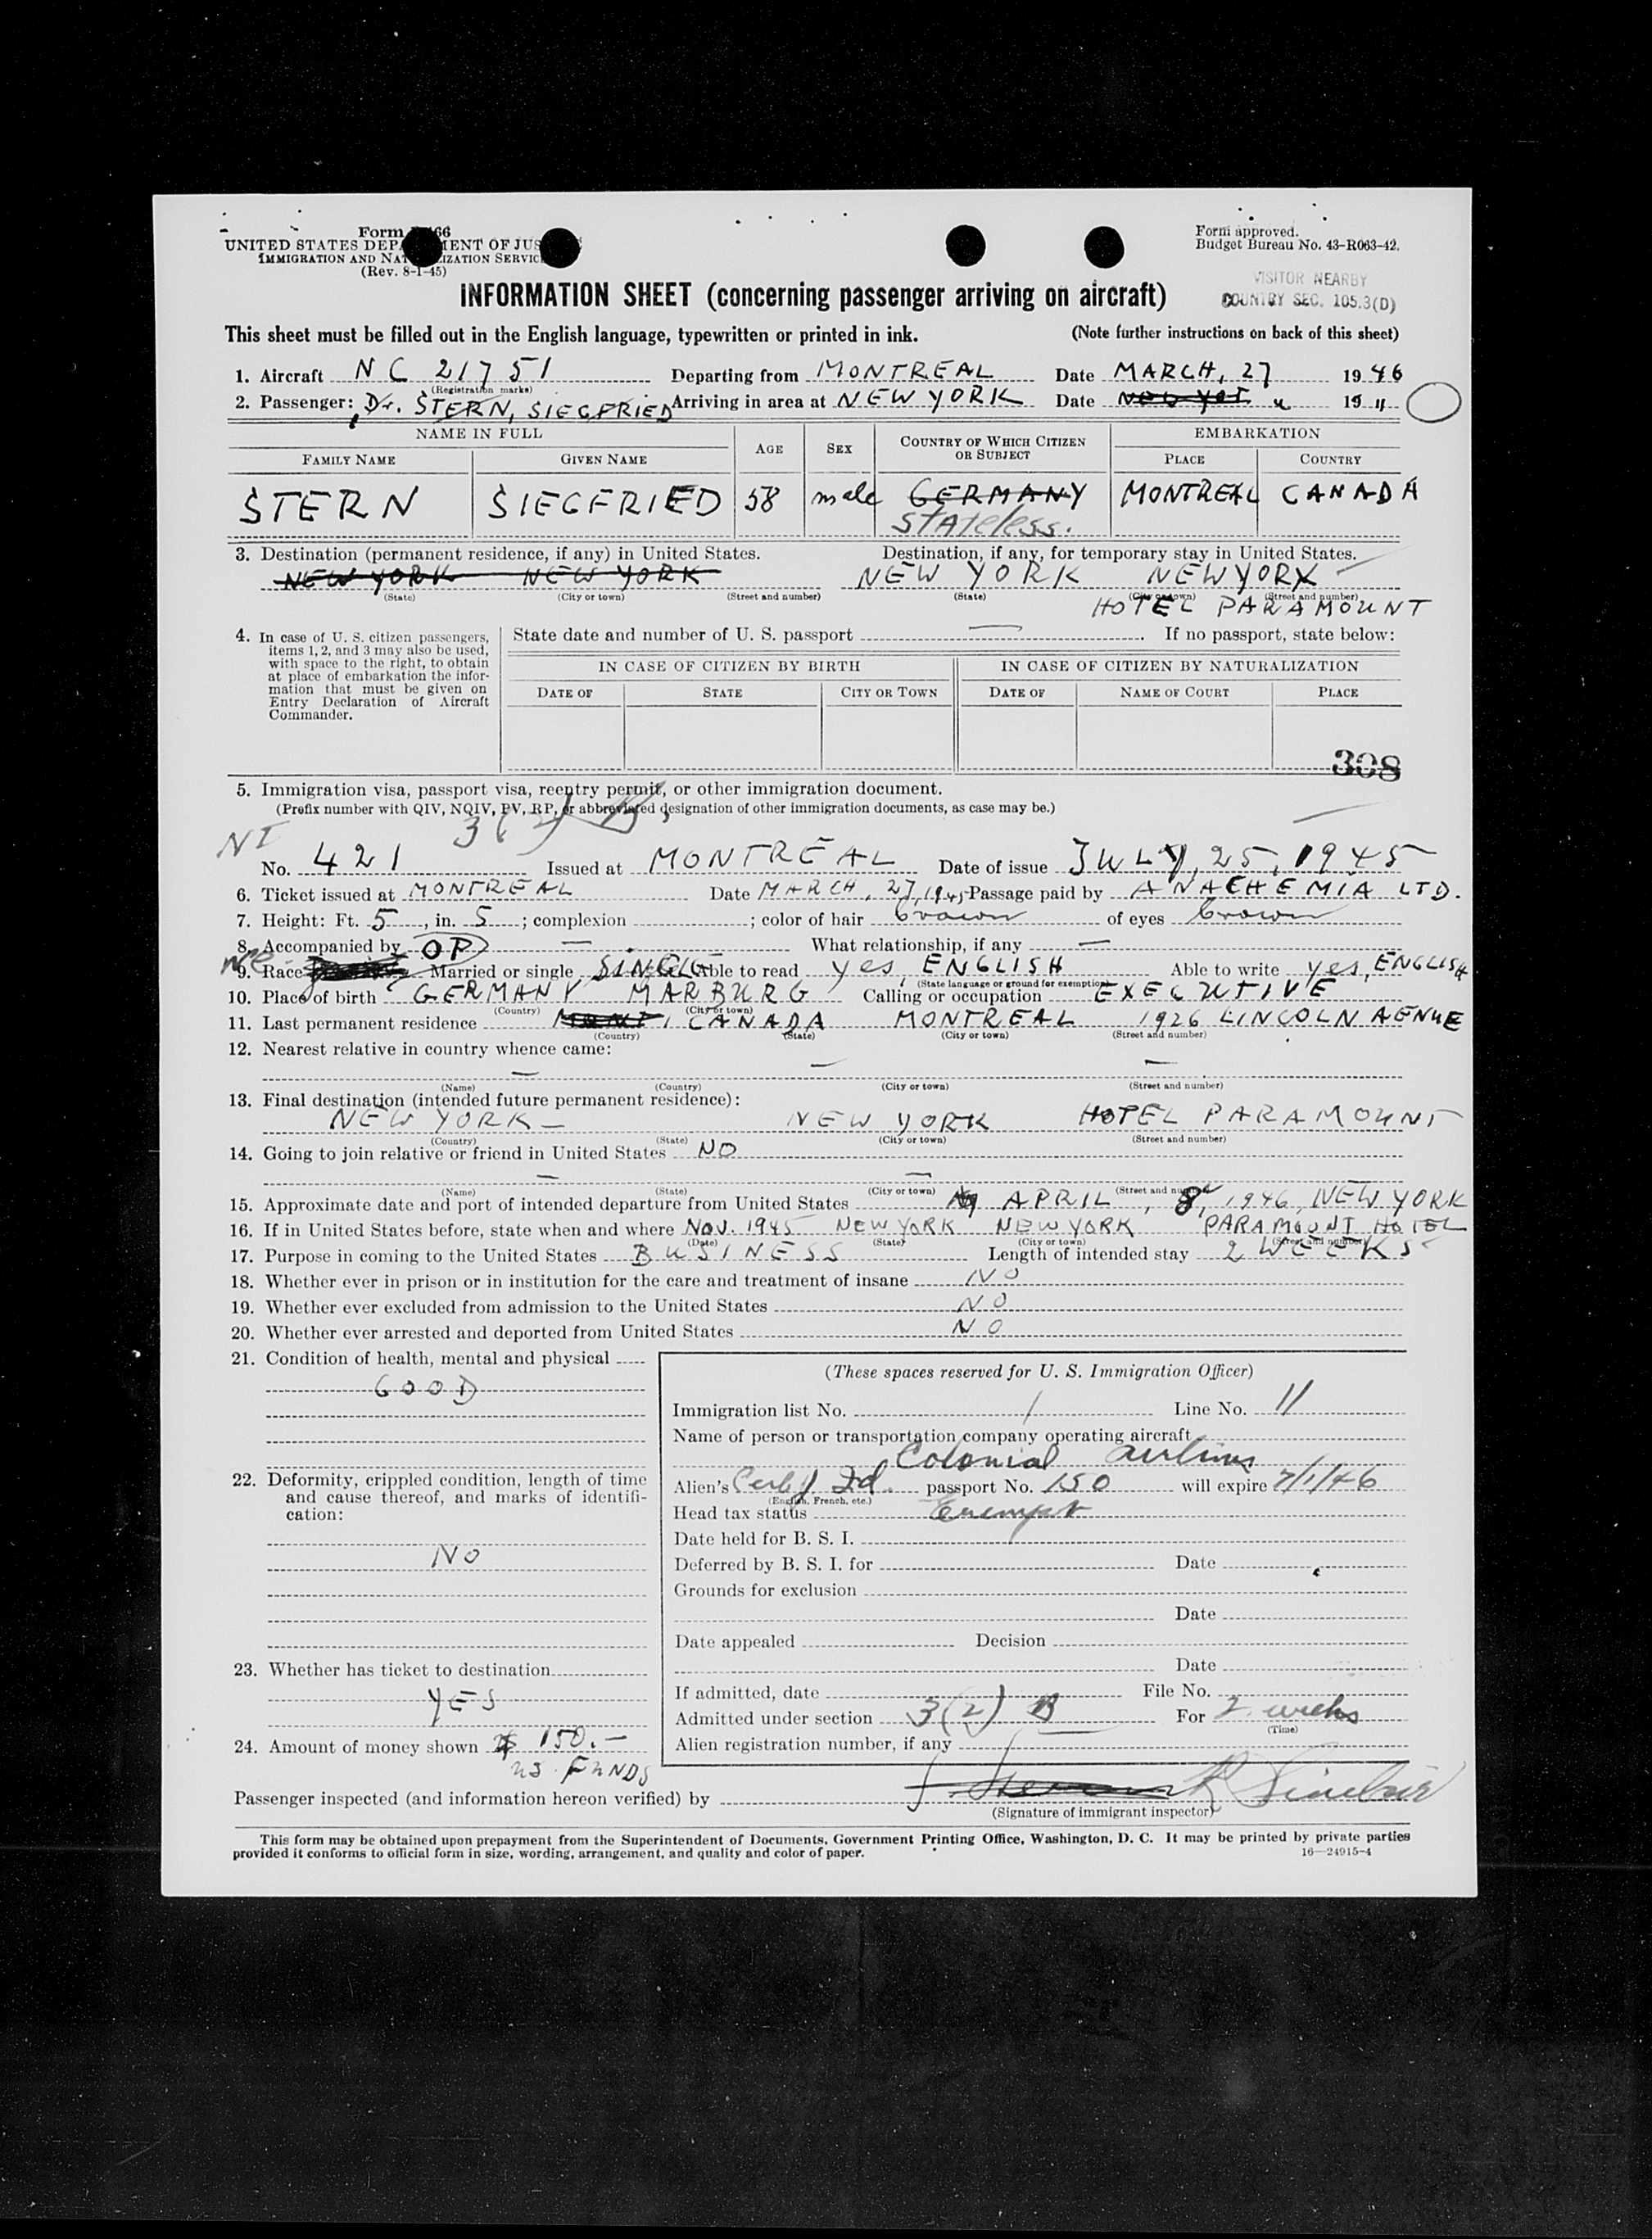 Form 66
UNITED STATES DEPARTMENT OF JUSTICE
IMMIGRATION AND NATURALIZATION SERVICE
(Rev. 8-1-45)
Form approved.
Budget Bureau No. 43-R063-42.
VISITOR NEARBY
COUNTRY SEC. 105.3(D)
INFORMATION SHEET (concerning passenger arriving on aircraft)
This sheet must be filled out in the English language, typewritten or printed in ink. (Note further instructions on back of this sheet)
1. Aircraft NC 21751 Departing from MONTREAL Date MARCH, 27 1946
(Registration marks)
2. Passenger: Dr. STERN, SIEGFRIED Arriving in area at NEW YORK Date " 19 "
NAME IN FULL AGE SEX COUNTRY OF WHICH CITIZEN OR SUBJECT EMBARKATION
FAMILY NAME GIVEN NAME PLACE COUNTRY
STERN SIEGFRIED 58 male GERMANY MONTREAL CANADA
Stateless.
3. Destination (permanent residence, if any) in United States. Destination, if any, for temporary stay in United States.
NEW YORK NEW YORK NEW YORK NEW YORK
(State) (City or town) (Street and number) (State) (City or town) (Street and number)
HOTEL PARAMOUNT
4. In case of U. S. citizen passengers, items 1, 2, and 3 may also be used, with space to the right, to obtain at place of embarkation the information that must be given on Entry Declaration of Aircraft Commander.
State date and number of U. S. passport — If no passport, state below:
IN CASE OF CITIZEN BY BIRTH IN CASE OF CITIZEN BY NATURALIZATION
DATE OF STATE CITY OR TOWN DATE OF NAME OF COURT PLACE
308
5. Immigration visa, passport visa, reentry permit, or other immigration document.
(Prefix number with QIV, NQIV, PV, RP, or abbreviated designation of other immigration documents, as case may be.)
NI 3(2) B
No. 421 Issued at MONTREAL Date of issue JULY, 25, 1945
6. Ticket issued at MONTREAL Date MARCH, 27, 1945 Passage paid by ANACHEMIA LTD.
7. Height: Ft. 5, in. 5; complexion ; color of hair brown of eyes brown
8. Accompanied by OP — What relationship, if any —
9. Race Married or single SINGLE Able to read yes, ENGLISH Able to write yes, ENGLISH
(State language or ground for exemption)
10. Place of birth GERMANY MARBURG Calling or occupation EXECUTIVE
(Country) (City or town)
11. Last permanent residence CANADA MONTREAL 1926 LINCOLN AENUE
(Country) (State) (City or town) (Street and number)
12. Nearest relative in country whence came:
— — —
(Name) (Country) (City or town) (Street and number)
13. Final destination (intended future permanent residence):
NEW YORK — NEW YORK HOTEL PARAMOUNT
(Country) (State) (City or town) (Street and number)
14. Going to join relative or friend in United States NO
— —
(Name) (State) (City or town) (Street and number)
15. Approximate date and port of intended departure from United States APRIL, 8, 1946, NEW YORK
16. If in United States before, state when and where NOV. 1945 NEW YORK NEW YORK PARAMOUNT HOTEL
(Date) (State) (City or town) (Street and number)
17. Purpose in coming to the United States BUSINESS Length of intended stay 2 WEEKS
18. Whether ever in prison or in institution for the care and treatment of insane NO
19. Whether ever excluded from admission to the United States NO
20. Whether ever arrested and deported from United States NO
21. Condition of health, mental and physical
GOOD
22. Deformity, crippled condition, length of time and cause thereof, and marks of identification:
NO
23. Whether has ticket to destination
YES
24. Amount of money shown $ 150.—
US FUNDS
(These spaces reserved for U. S. Immigration Officer)
Immigration list No. 1 Line No. 11
Name of person or transportation company operating aircraft
Colonial Airlines
Alien's Id. passport No. 150 will expire 7/1/46
(English, French, etc.)
Head tax status Exempt
Date held for B. S. I.
Deferred by B. S. I. for Date
Grounds for exclusion
Date
Date appealed Decision
Date
If admitted, date File No.
Admitted under section 3(2) B For 2 weeks
(Time)
Alien registration number, if any
Passenger inspected (and information hereon verified) by R Sinclair
(Signature of immigrant inspector)
This form may be obtained upon prepayment from the Superintendent of Documents, Government Printing Office, Washington, D. C. It may be printed by private parties
provided it conforms to official form in size, wording, arrangement, and quality and color of paper. 16—24915-4